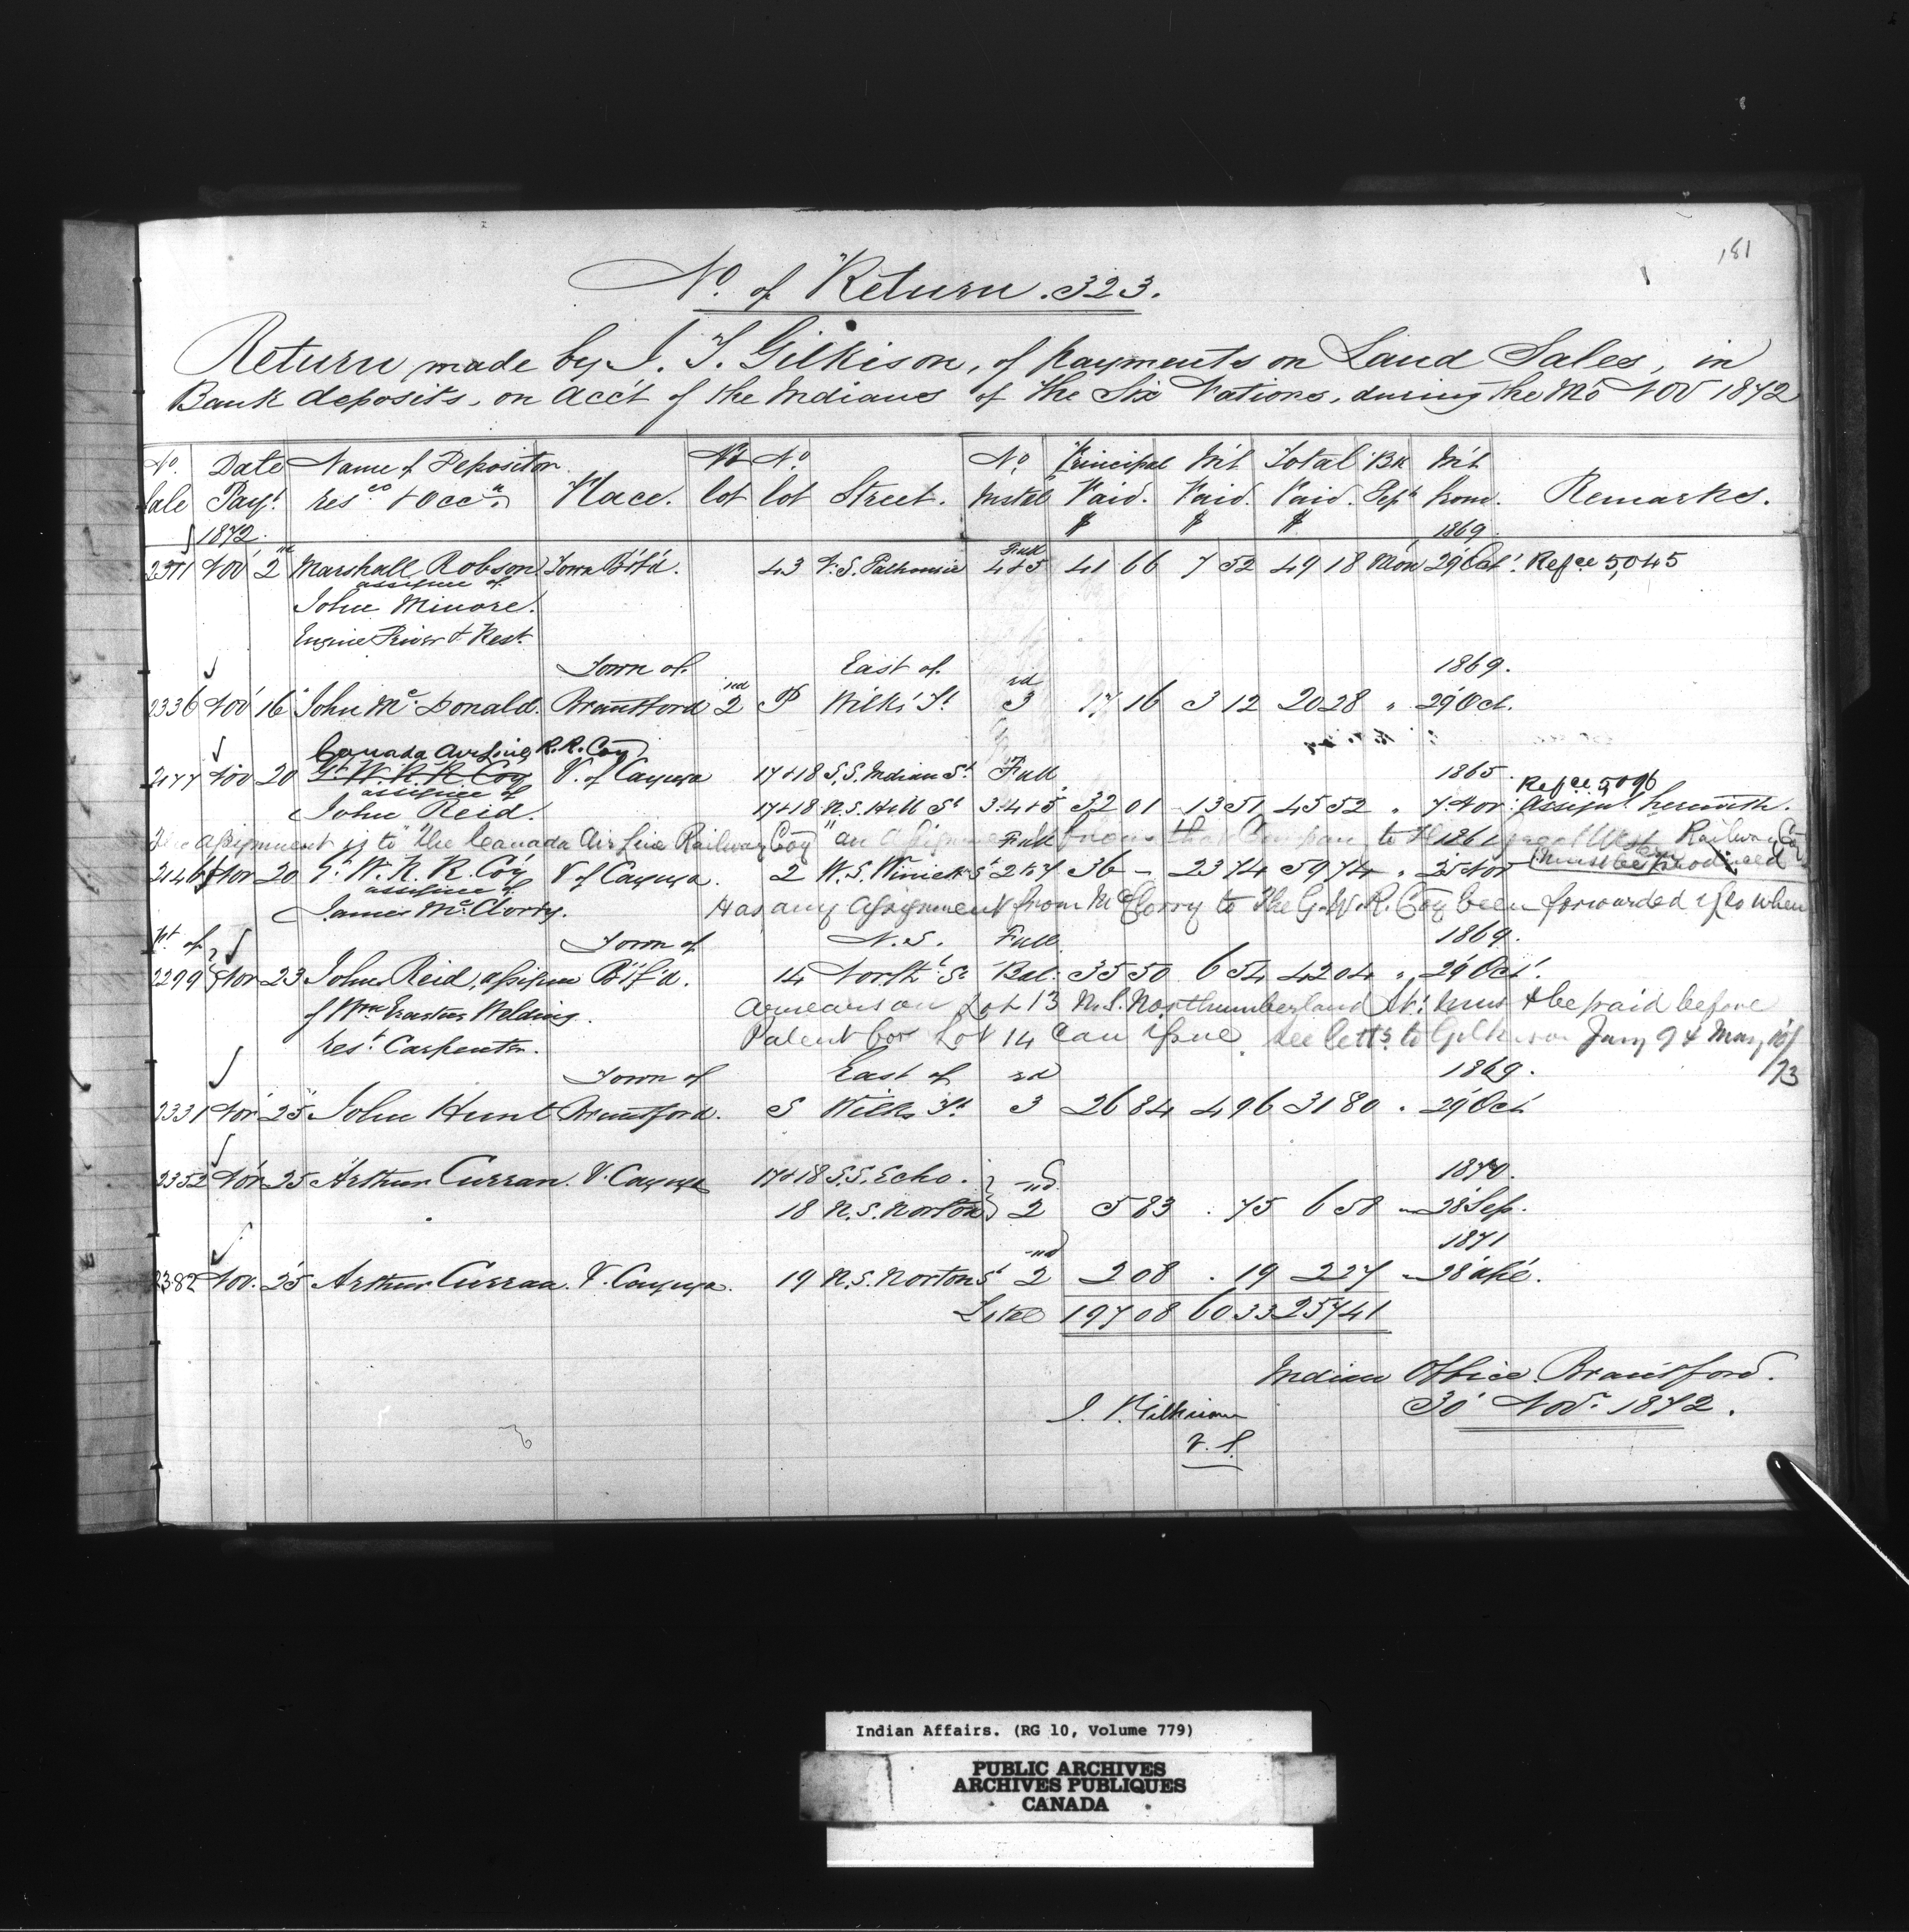 181
No. of Return. 323.
Return made by J. T. Gilkison, of payments on Land Sales, in
Bank deposits, on acc't of the Indians of the Six Nations, during the Mo Nov 1872
No. Sale Date Payt. Name of Depositor resce & Occn. Place. Pt lot No. lot Street. No. Instal Principal Paid. Int Paid. Total Paid. Bk Dept Int from. Remarks.
1872. $ $ $ 1869
Full
2371 Nov 2nd Marshall Robson Town B'f'd. 43 N.S. Dalhousie 4&5 41 66 7 52 49 18 Mon 29 Oct. Refce 5,045
assignee of
John Minore.
Engine Driver & Rest.
Town of East of 1869.
2336 Nov 16 John McDonald. Brantford 2 P Wilks St 3rd 17 16 3 12 20 28 " 29 Oct.
Canada Air Line R.R. Coy
2177 Nov 20 G. W. R. R. Coy V. of Cayuga 17&18 S.S. Indian St Full 1865
assignee of Refce 5,096
John Reid. 17&18 N.S. Hill St 3.4&5 32 01 13 51 45 52 " 7 Nov. Assignt herewith.
The assignment is to "the Canada Air Line Railway Coy" an assignment from that Company to the Great Western Railway Coy
Full 1861 must be produced
2146 Nov 20 G. W. R. R. Coy V. of Cayuga. 2 W.S. 36 – 23 74 59 74 " 25 Nov
assignee of
James McClorry. Has any assignment from McClorry to the G.W.R. Coy been forwarded if so when
Pt of Town of N.S. Full 1869.
2299 Nov 23 John Reid, assignee B'f'd. 14 Northd St Bal. 35 50 6 54 42 04 " 29 Oct.
of Wm Erastus Welding. arrears on Lot 13 N.S. Northumberland St. must be paid before
rest. Carpenter. Patent for Lot 14 can issue. See letts to Gilkison Jany 9 & May 16/73
Town of East of 1869.
2331 Nov 25 John Hunt Brantford. S Wilks St 3rd 26 84 4 96 31 80 " 29 Oct
1870.
2352 Nov 25 Arthur Curran. V. Cayuga 17&18 S.S. Echo.
18 N.S. Norton 2nd 5 83 . 75 6 58 " 28 Sep.
1871
2382 Nov. 25 Arthur Curran. V. Cayuga. 19 N.S. Norton St 2nd 2 08 . 19 2 27 "
Total 197 08 60 33 257 41
Indian Office Brantford.
30 Nov. 1872.
J. T. Gilkison
V. S.
Indian Affairs. (RG 10, Volume 779)
PUBLIC ARCHIVES
ARCHIVES PUBLIQUES
CANADA